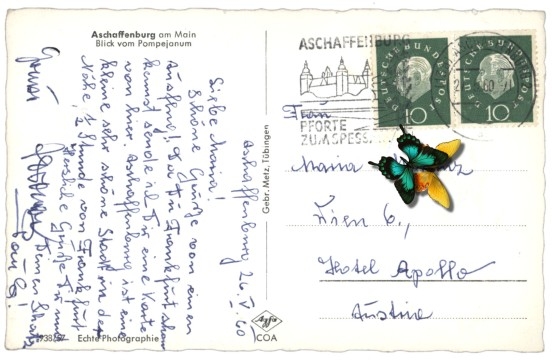 Aschaffenburg am Main
Blick vom Pompejanum
Aschaffenburg 26. V. 60
Liebe Maria!
Schöne Grüße von einem
Ausflug! Gut in Frankfurt
sende ich Dir eine Karte
von hier. Aschaffenburg ist eine
kleine sehr schöne Stadt in der
Nähe, 1 Stunde von Frankfurt
Herzliche Grüße Dir und
Deinem
Echte Photographie
Gebr. Metz, Tübingen
Agfa
COA
ASCHAFFENBURG
PFORTE
ZUM SPESS
DEUTSCHE BUNDESPOST
10
DEUTSCHE BUNDESPOST
10
Frau
Maria
Wien 6.,
Hotel Apollo
Austria